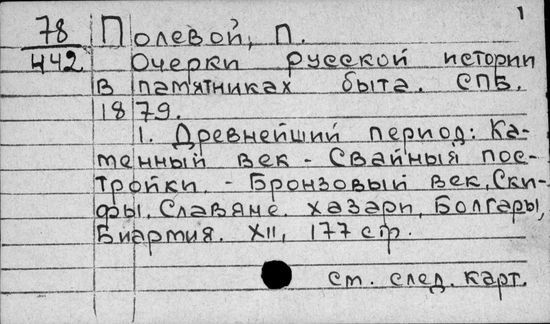 1
78 Полевой, П.
442 Очерки русской истории
в памятниках быта. СПБ.
1879.
1. Древнейший период: Ка-
менный век - Свайныя пос-
тройки. - Бронзовый век, Ски-
фы. Славяне. Хазары, Болгары,
Биармия. XII, 177 стр.
ст. след. карт.